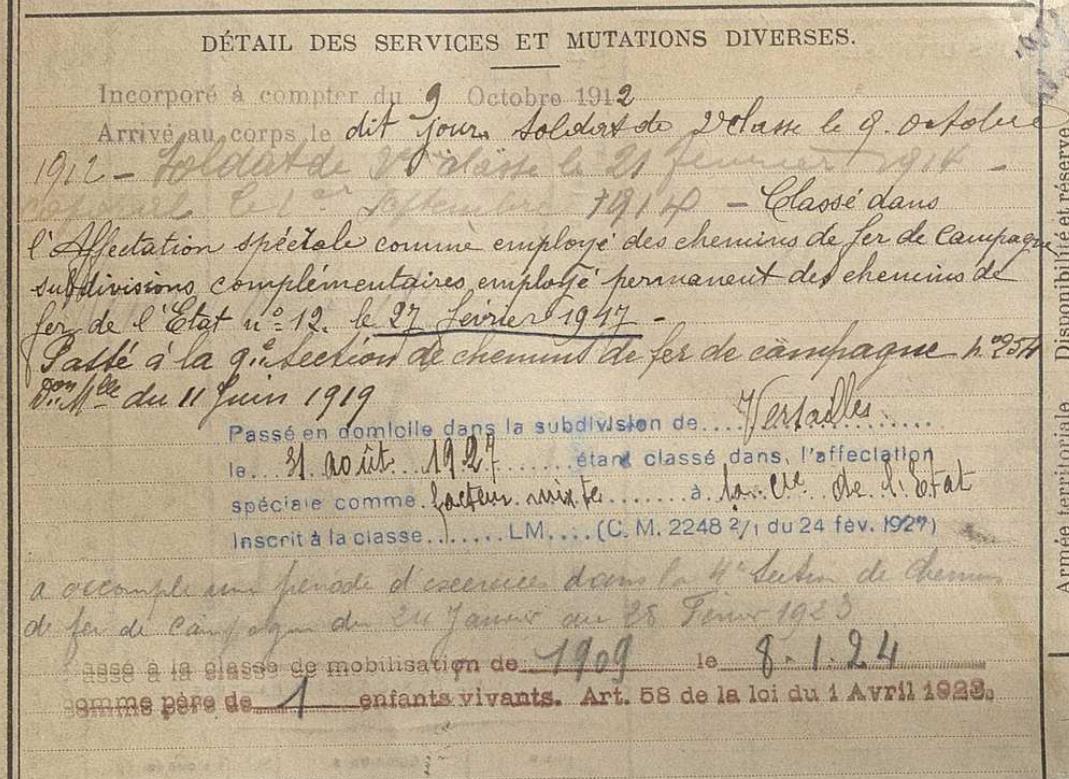 DÉTAIL DES SERVICES ET MUTATIONS DIVERSES.
Incorporé à compter du 9 Octobre 1912
Arrivé au corps le dit jour. Soldat de 2e classe le 9. octobre
1912 – Soldat de classe le 21 1914 –
le 1er Septembre 1914 – Classé dans
l'Affectation spéciale comme employé des chemins de fer de Campagne
subdivisions complémentaires employé permanent des chemins de
fer de l'État n° 12. le 27 février 1917 –
Passé à la 9e Section de chemins de fer de campagne
du 11 Juin 1919
Passé en domicile dans la subdivision de.... Versailles
le... 31 août 1927 ....... étant classé dans, l'affectation
spéciale comme facteur mixte ....... à la Cie de l'Etat
Inscrit à la classe....... LM.... (C. M. 2248 2/1 du 24 fév. 1927)
a accompli une période d'exercices dans la 4e Section de chemins
de fer de campagne du 24 Janvier au 1923
assé à la classe de mobilisation de 1909 le 8.1.24
omme père de 1 enfants vivants. Art. 58 de la loi du 1 Avril 1923.
Disponibilité et réserve
Armée territoriale